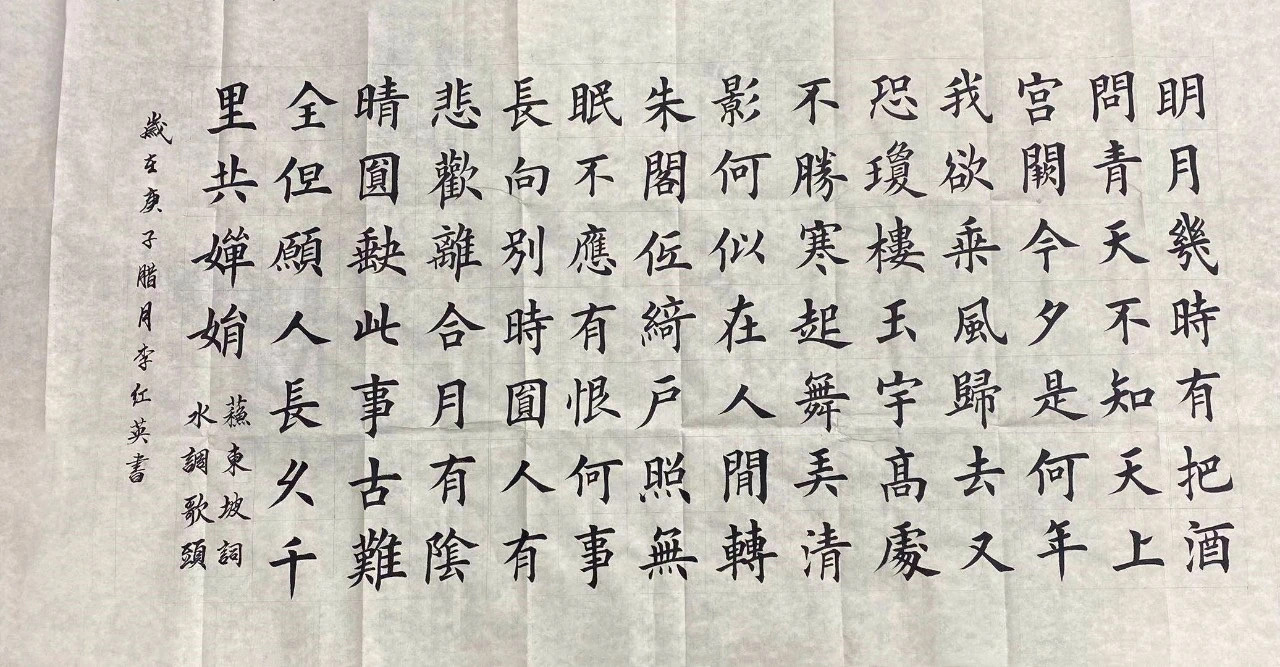 明月幾時有把酒
問青天不知天上
宫闕今夕是何年
我欲乗風歸去又
恐瓊樓玉宇髙處
不勝寒起舞弄清
影何似在人間轉
朱閣低綺戶照無
眠不應有恨何事
長向别時圓人有
悲歡離合月有陰
晴圓缺此事古難
全但願人長久千
里共嬋娟
蘇東坡詞
水調歌頭
歲在庚子腊月李红英書